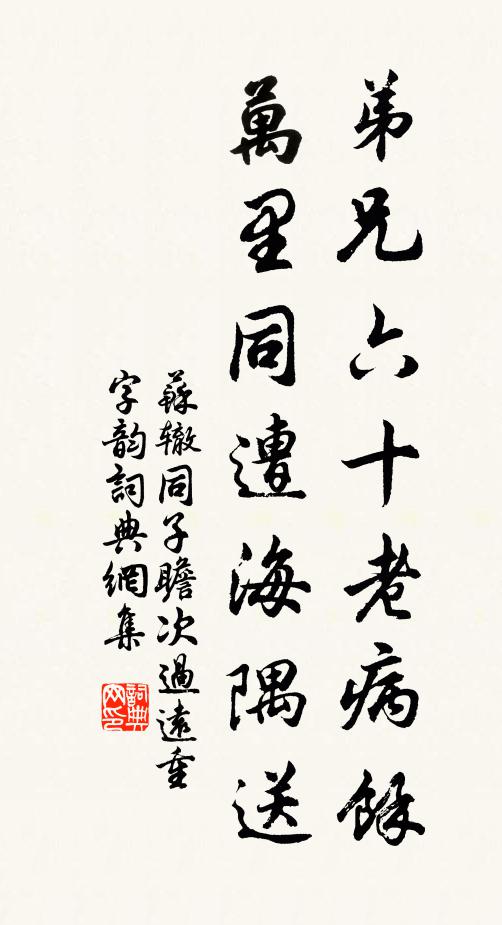 弟兄六十老病餘
萬里同遭海隅送
蘇辙同子瞻次過遠重
字韵詞典網集
詞典网印